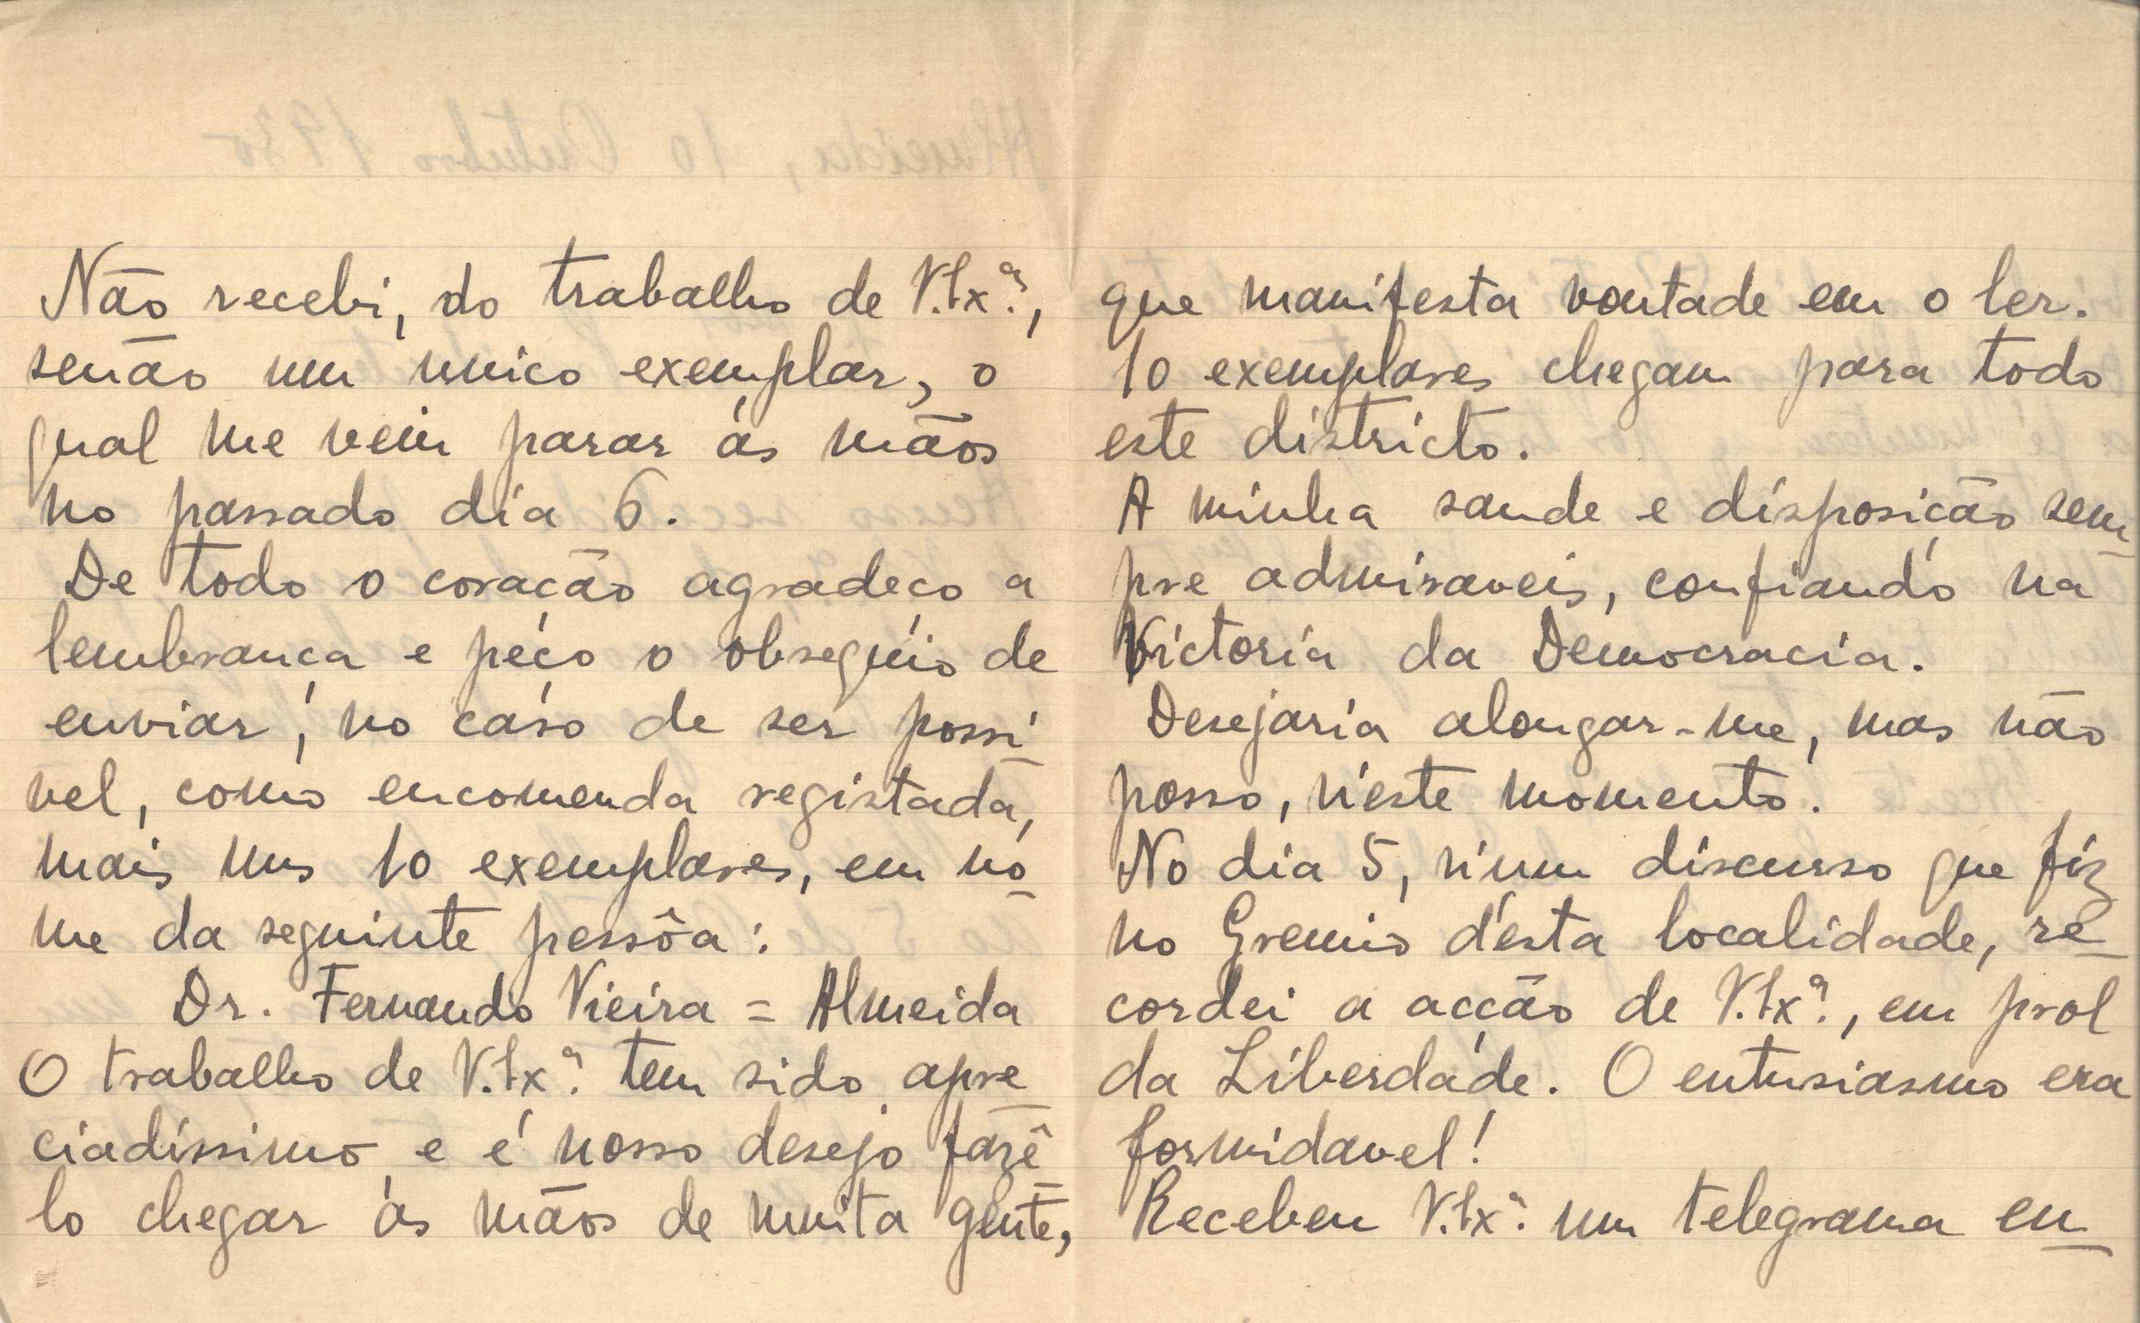 Não recebi, do trabalho de V. Exª.,
senão um unico exemplar, o
qual me veiu parar ás mãos
no passado dia 6.
De todo o coração agradeço a
lembrança e peço o obsequio de
enviar, no caso de ser possi
vel, como encomenda registada,
mais uns 10 exemplares, em no
me da seguinte pessôa:
Dr. Fernando Vieira = Almeida
O trabalho de V. Exª. tem sido apre
ciadissimo e é nosso desejo fazê
lo chegar ás mãos de muita gente,
que manifesta vontade em o ler.
10 exemplares chegam para todo
este districto.
A minha saude e disposição sem
pre admiraveis, confiando na
Victoria da Democracia.
Desejaria alongar-me, mas não
posso, n'este momento.
No dia 5, n'um discurso que fiz
no Gremio d'esta localidade, re
cordei a acção de V. Exª., em prol
da Liberdade. O entusiasmo era
formidavel!
Recebeu V. Exª. um telegrama en
Almeida, 10 Outubro 1930